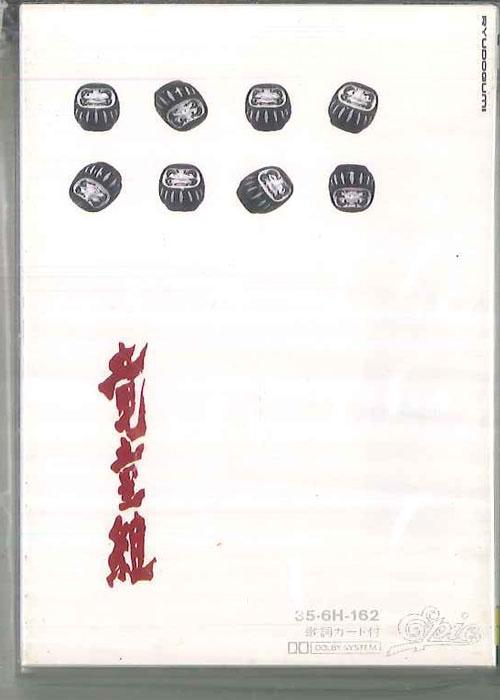 RYUDOGUMI
竜童組
35·6H-162
歌詞カード付
DOLBY SYSTEM
Epic